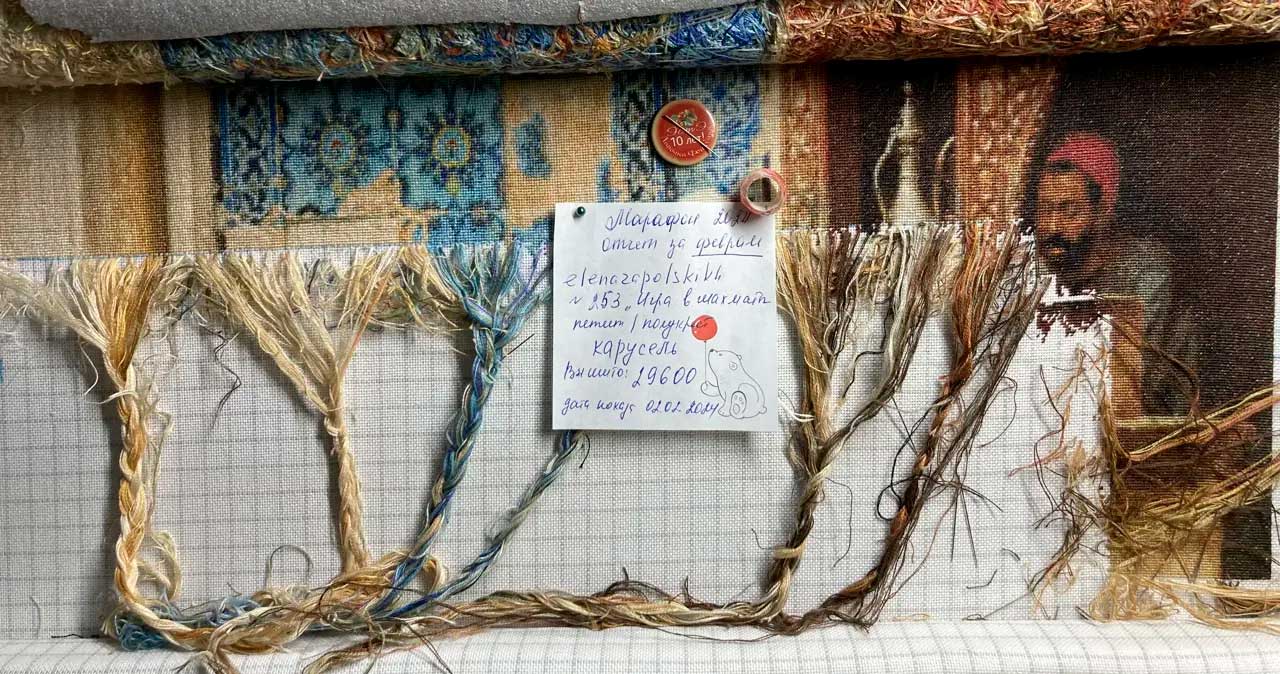 10 лет!
Марафон 2024
отчет за февраль
elenazapolskikh
№ 253 „Игра в шахматы
петит / полукрест
карусель
Вышито: 29600
дата показа 02.02.2024